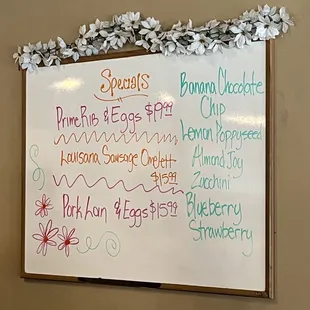 Specials
Prime Rib & Eggs $19.99
Louisana Sausage Omlett
$15.99
Pork Loin & Eggs $15.99
Banana Chocolate
Chip
Lemon Poppyseed
Almond Joy
Zucchini
Blueberry
Strawberry